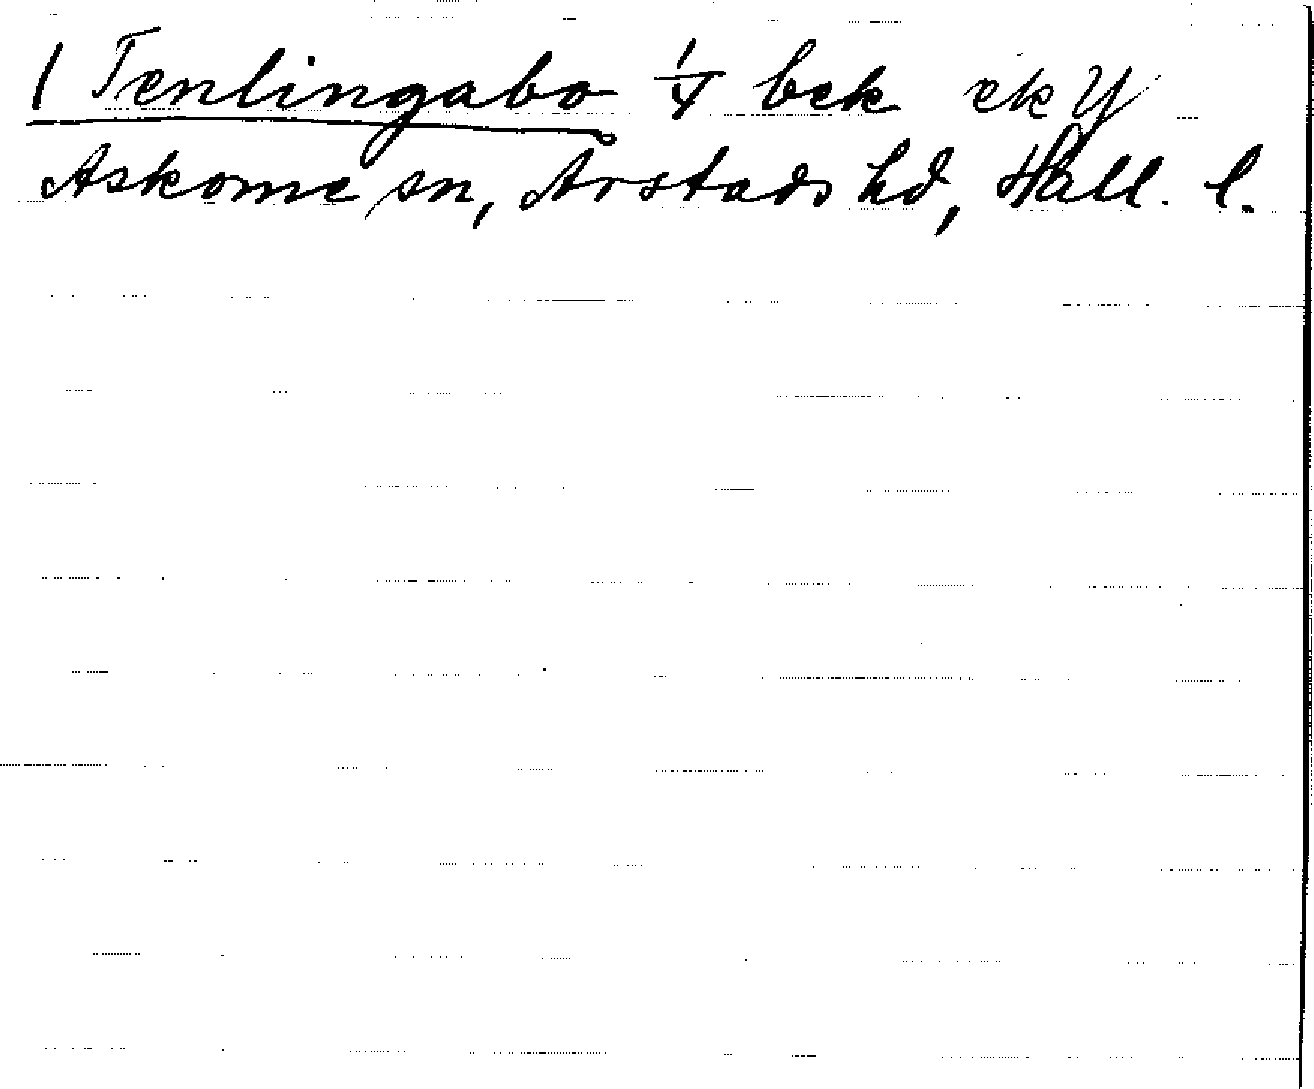 1 Tenlingabo 1/4 bek ek Y
Askome sn, Årstads hd, Hall. l.